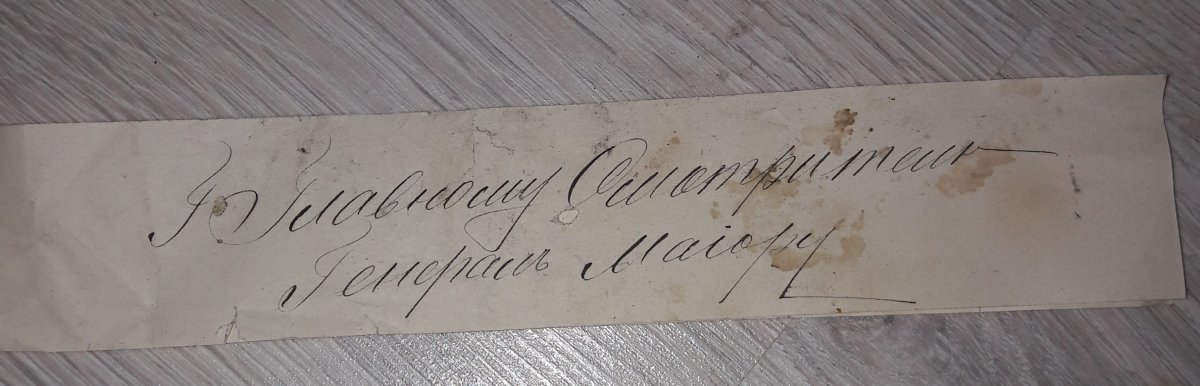 Г Главному Смотрителю
Генералъ Маіору